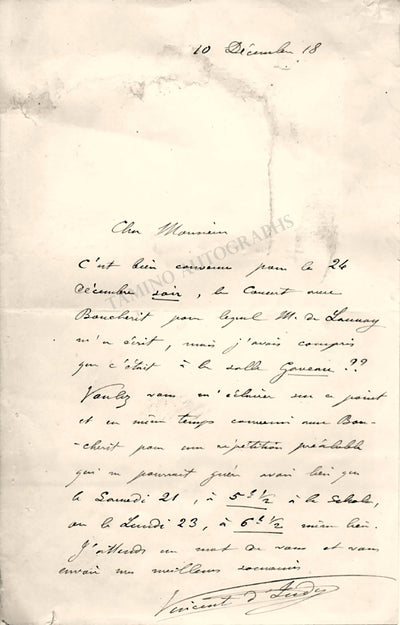 10 Décembre 18
Cher Monsieur
TAMINO AUTOGRAPHS
C'est bien convenu pour le 24
décembre soir, le Concert avec
Boucherit pour lequel M. de Launay
m'a écrit, mais j'avais compris
que c'était à la salle Gaveau ??
Voulez vous m'éclairer sur ce point
et en même temps convenir avec Bou-
-cherit pour une répétition préalable
qui ne pourrait guère avoir lieu que
le Samedi 21, à 5h 1/2 à la Schola,
ou le Lundi 23, à 6h 1/2 même lieu.
J'attends un mot de vous et vous
envoie mes meilleurs souvenirs
Vincent d'Indy